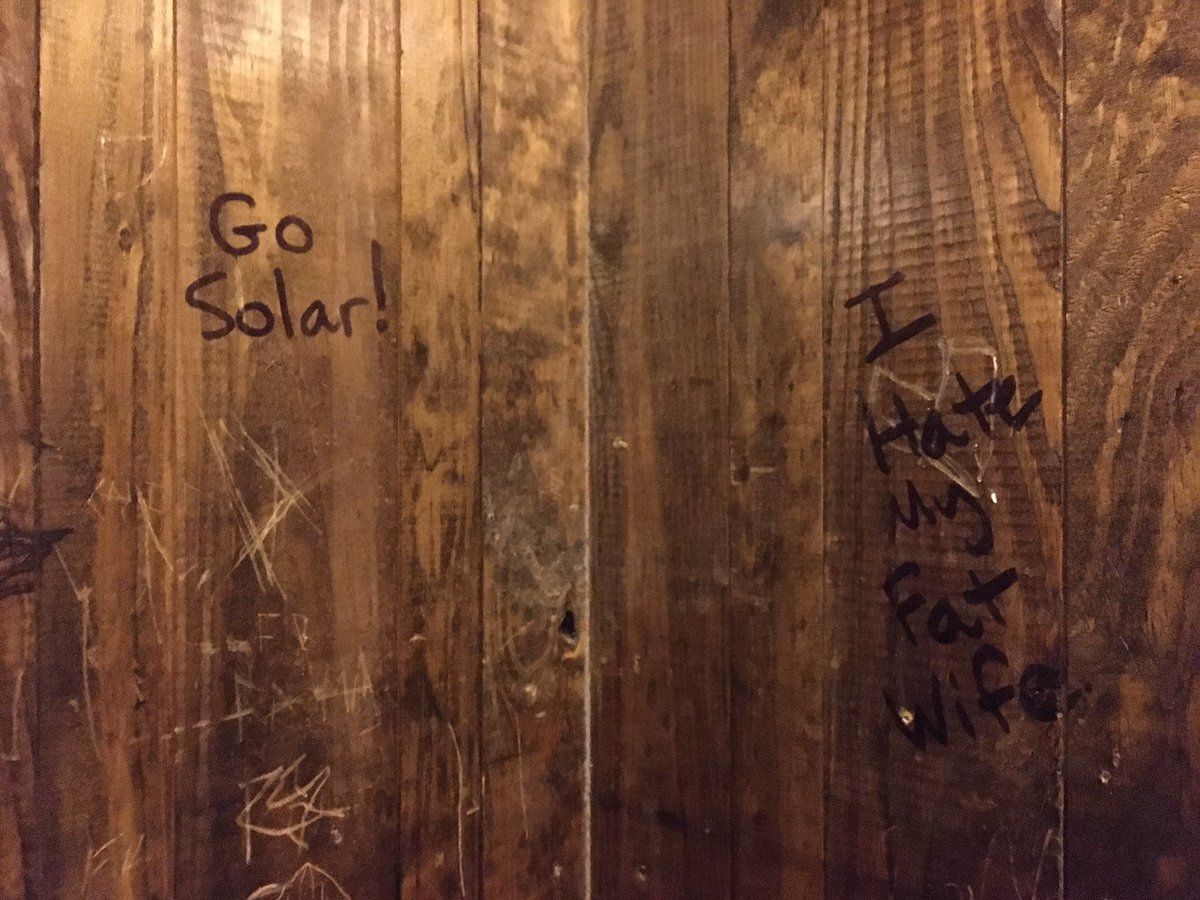 Go
Solar!
I
Hate
My
Fat
Wife.